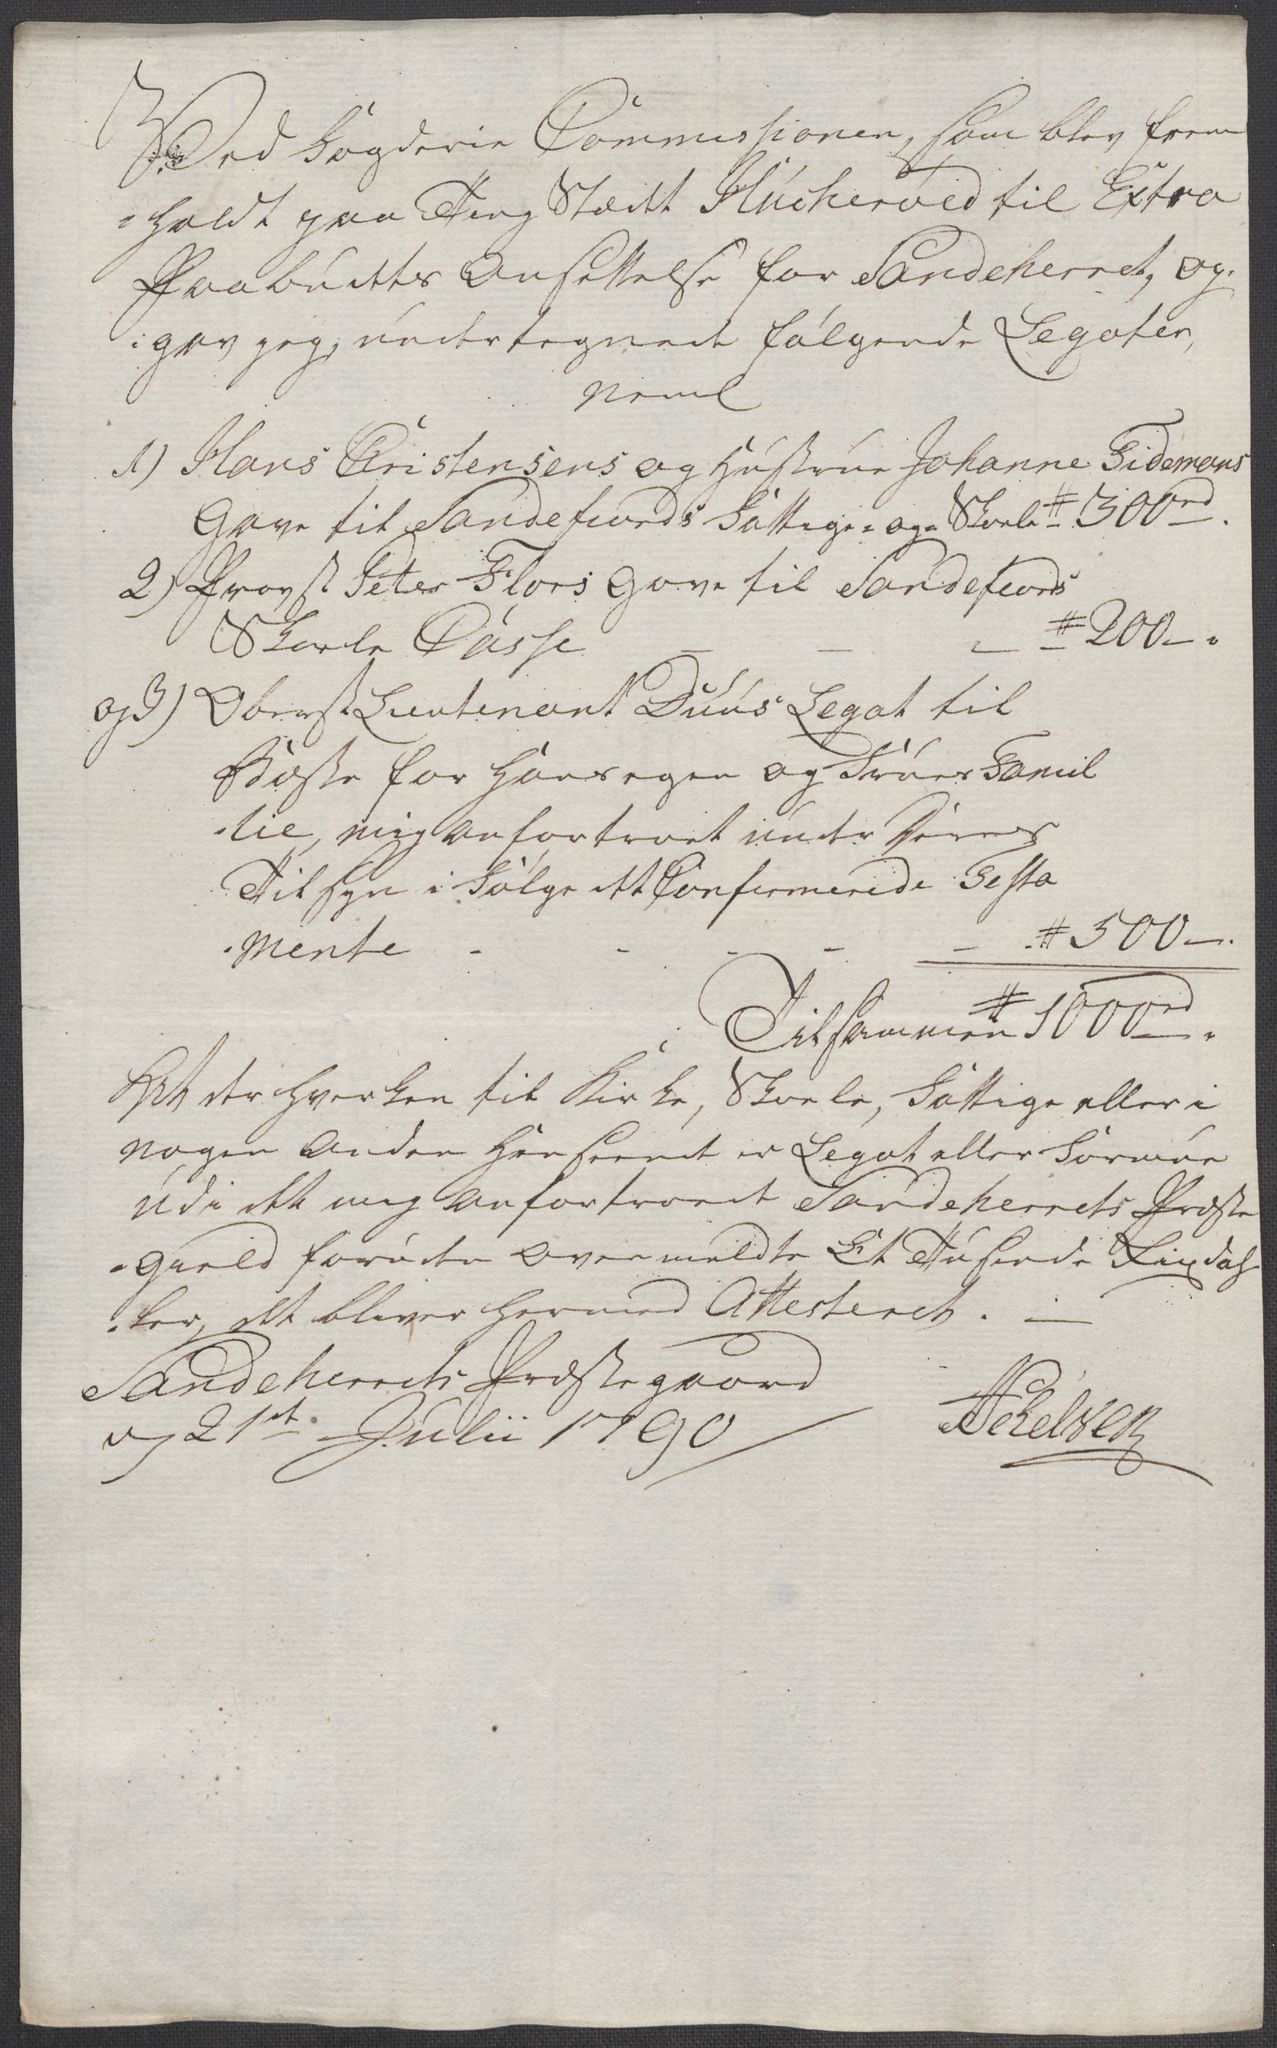 Ved Fogderie Commissionen, som blev frem
-holdt paa Ting Stædt Hucherød til Extra
Paabudets Ansettelse for Sandeherret, op-
-gav jeg, undertegnede følgende Legater,
neml
1) Hans Christensens og Hustrue Johanne Tidemans
Gave til Sandefiords Fattige- og Skole # 300rd.
2) Provst Peter Flors Gave til Sandefiords
Skoele Casse - - - # 200 - .
og 3) Oberst Lieutenant Duus Legat til
Beste for Hans egen og Frues Famil
-lie, mig anfortroet under Tilsyn i Følge det Confirmerede Testa
-mente - - - - - # 500 - .
Tilsammen # 1000rd.
At der hverken til Kirke, Skoele, Fattige eller i
nogen anden Henseende er Legat eller Formue
udi det mig anfortroede Sandeherrets Præste
-gield foruden ovenmeldte Et Tusinde Rixdal-
-ler, det bliver hermed Attesteret. -
Sandeherrets Præstegaard
og 21de Julii 1790